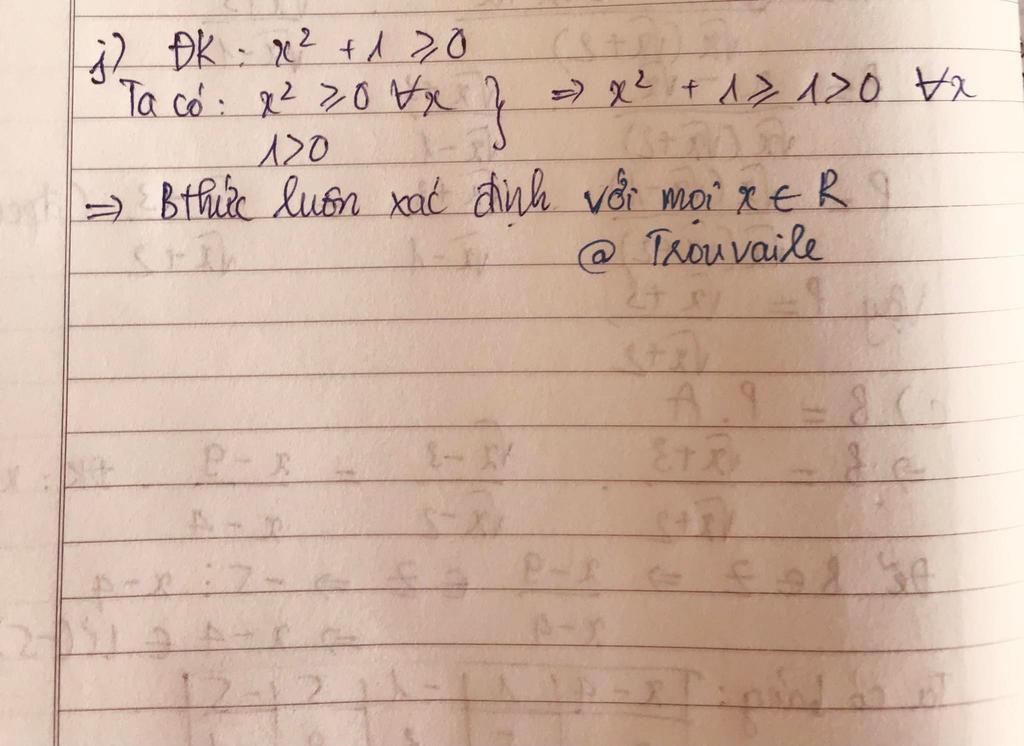 j) ĐK: x² + 1 ≥ 0
Ta có: x² ≥ 0 ∀x } ⇒ x² + 1 ≥ 1 > 0 ∀x
1 > 0
⇒ Bthức luôn xác định với mọi x ∈ R
@ Trouvaile